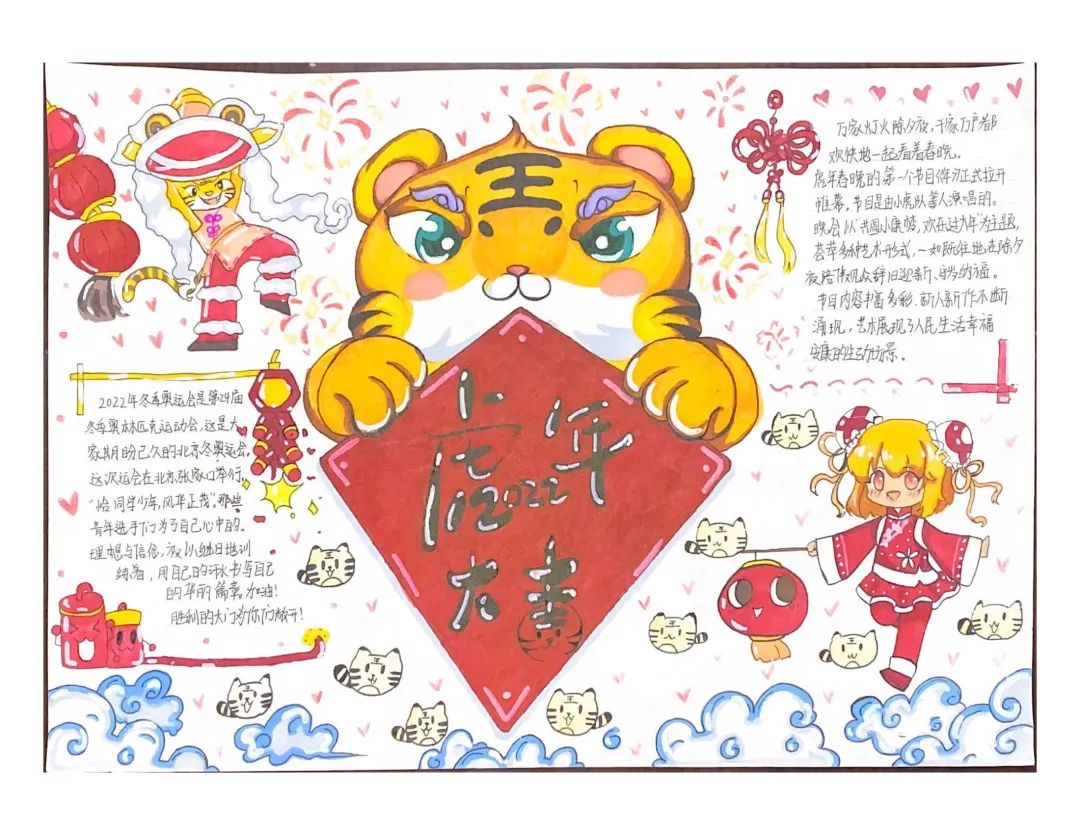 王
虎年
2022
大吉
万家灯火除夕夜,千家万户都
欢快地一起看着春晚。
虎年春晚的第一个节目缘汐正式拉开
帷幕,节目是由小虎队等人演唱的。
晚会以"共圆小康梦,欢乐过大年"为主题,
荟萃多种艺术形式,一如既往地在除夕
夜陪伴观众辞旧迎新、守岁纳福。
节目内容丰富多彩.新人新作不断
涌现,艺术展现了人民生活幸福
安康的生动场景。
2022年冬季奥运会是第24届
冬季奥林匹克运动会,这是大
家期盼已久的北京冬奥运会,
这次运会在北京,张家口举行,
"恰同学少年,风华正茂",那些
青年选手们为了自己心中的
理想与信念,夜以继日地训
练着,用自己的汗水书写自己
的华丽篇章,加油!
胜利的大门为你们敞开!